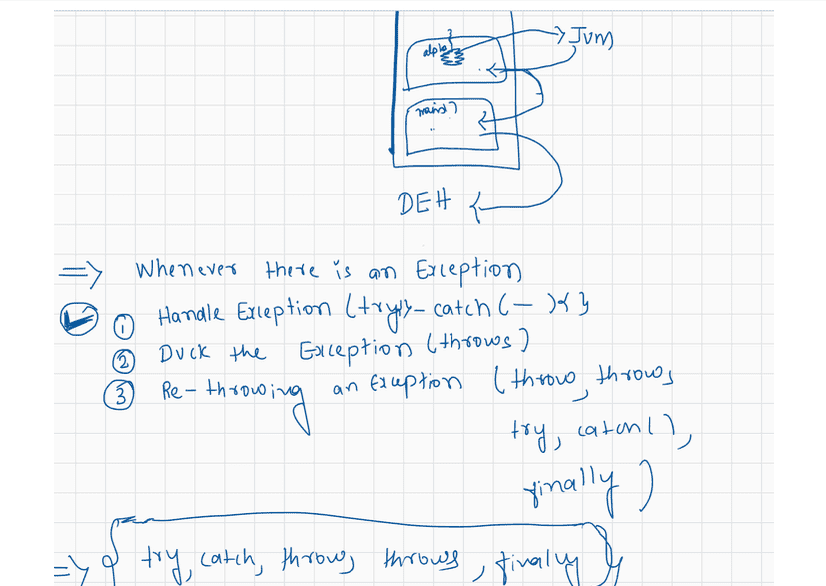 alpha
JVM
main()
DEH
=> Whenever there is an Exception
① Handle Exception (try{}-catch(—){}
② Duck the Exception (throws)
③ Re-throwing an Exception (throw, throws
try, catch(),
finally)
=> { try, catch, throw, throws, finally }